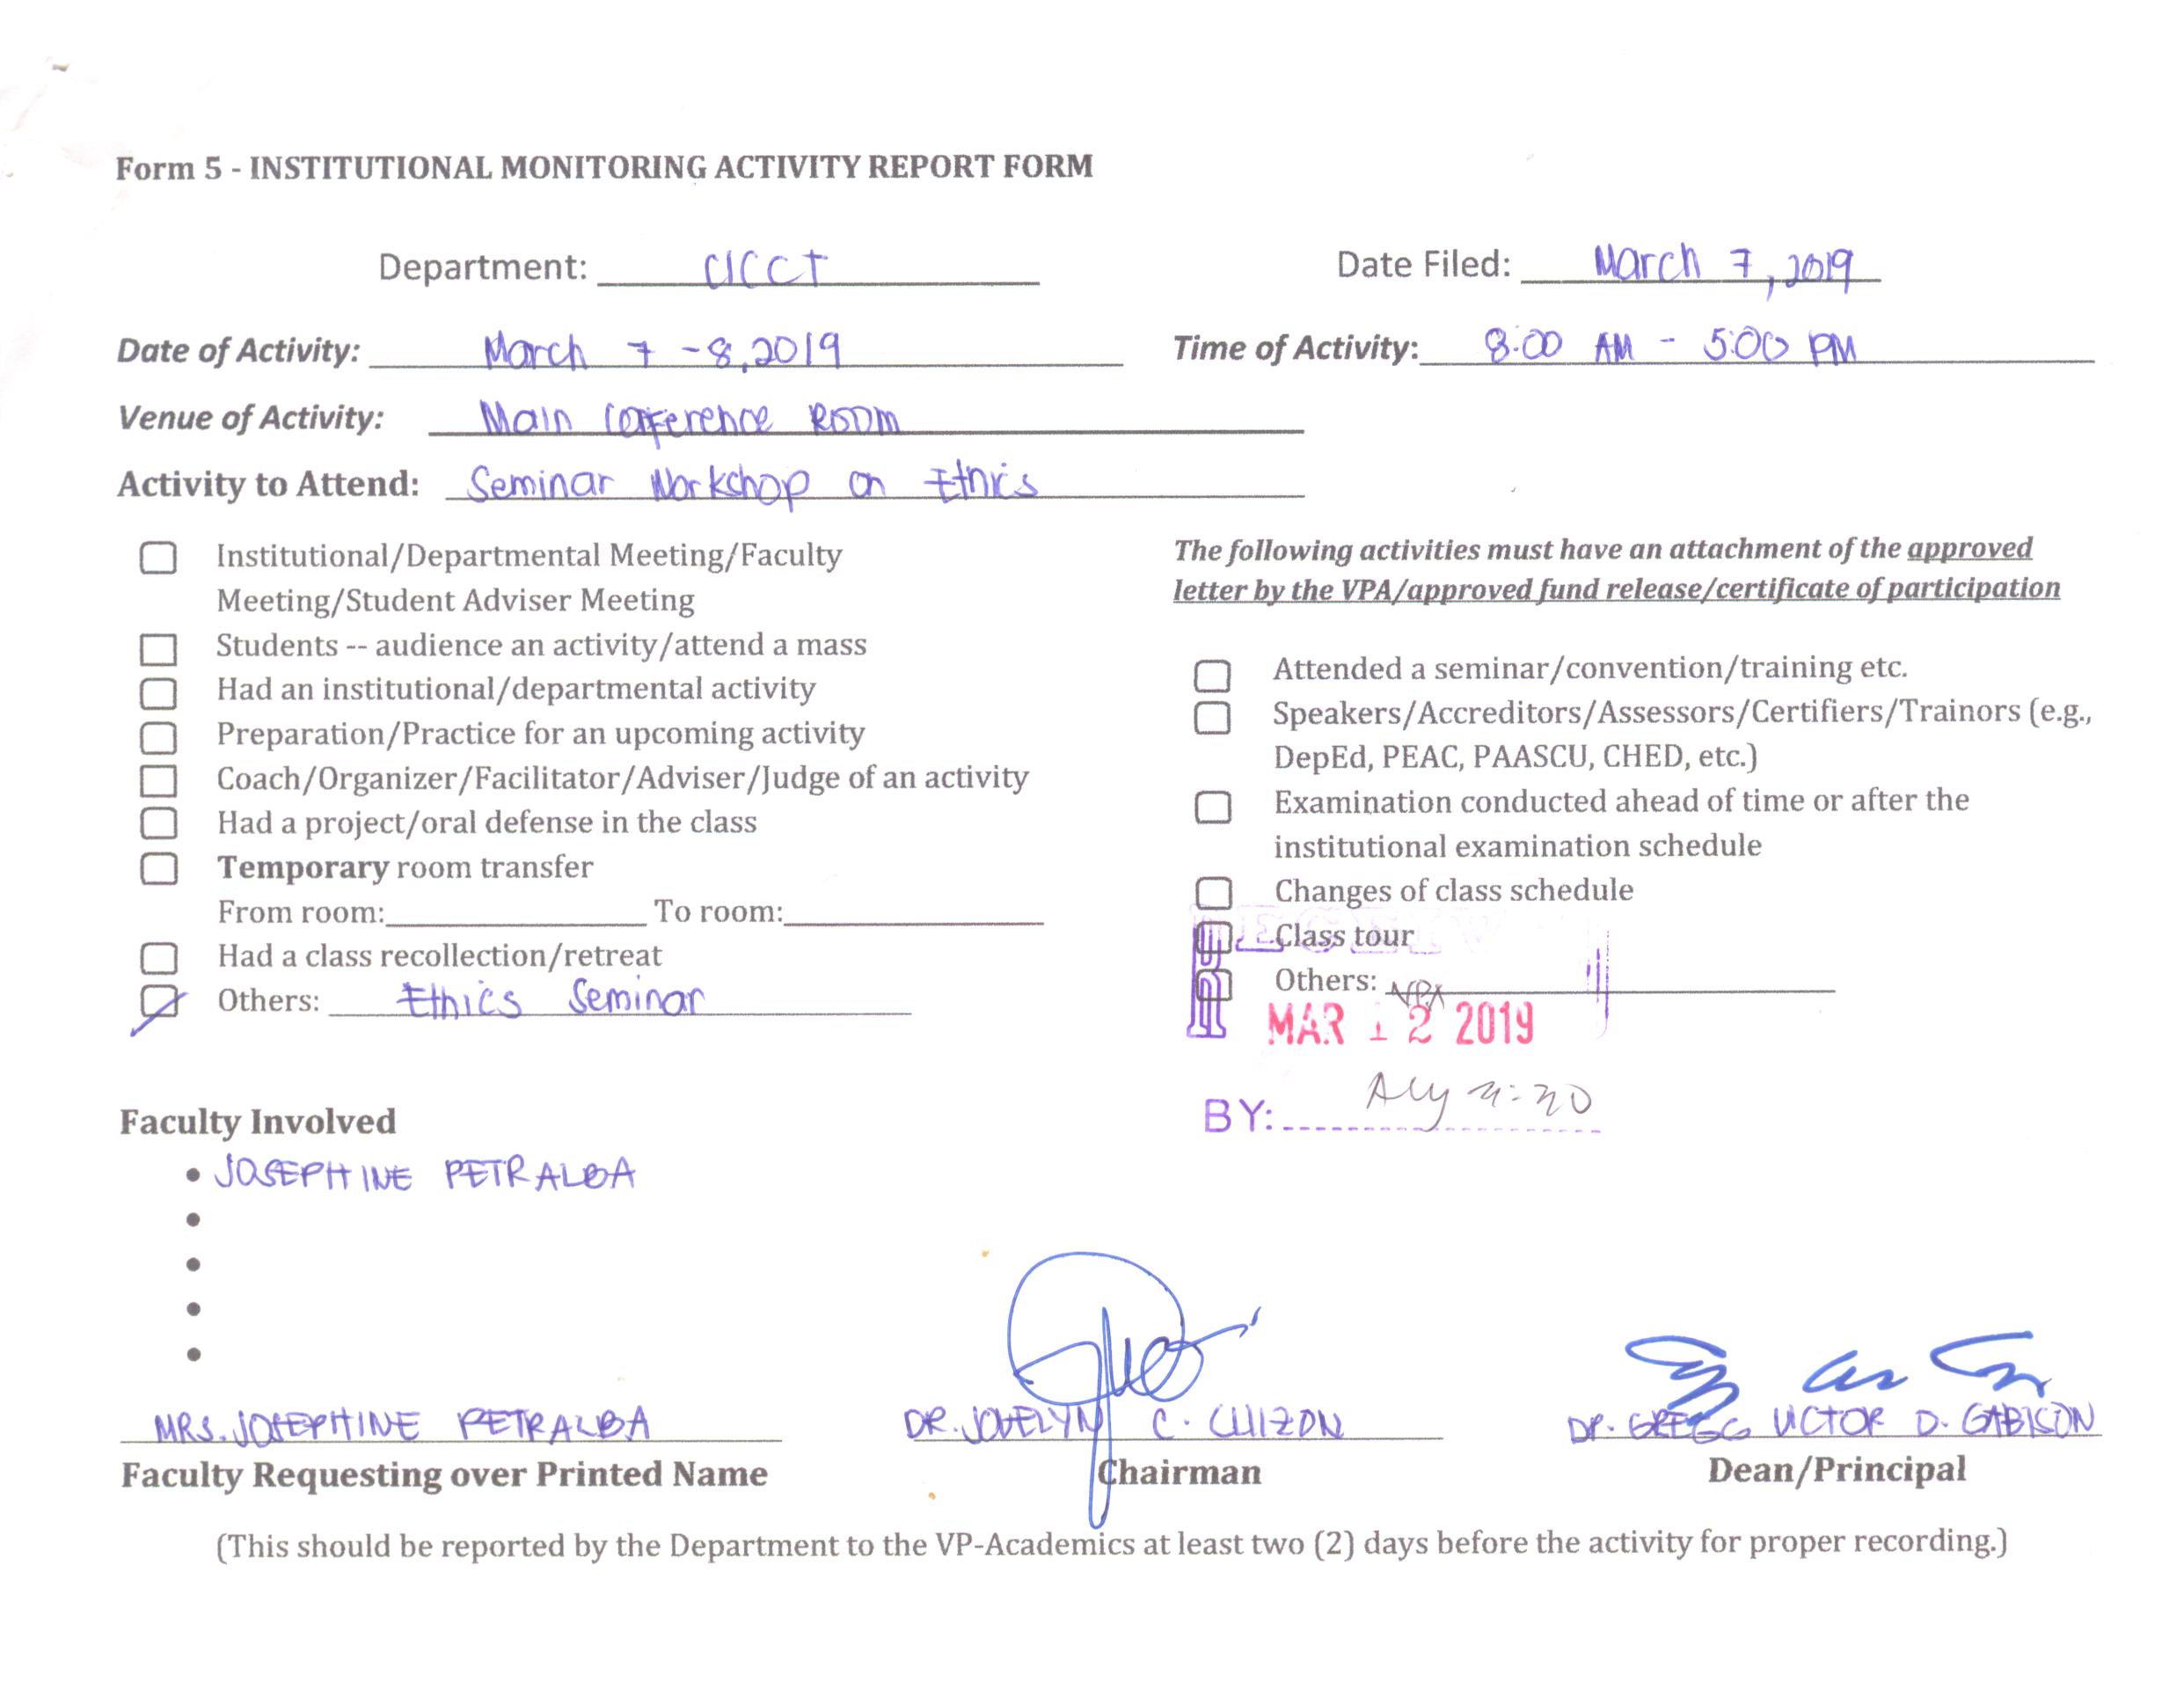 Form 5 - INSTITUTIONAL MONITORING ACTIVITY REPORT FORM
Department: CICCT Date Filed: March 7, 2019
Date of Activity: March 7 - 8, 2019 Time of Activity: 8:00 AM - 5:00 PM
Venue of Activity: Main Conference Room
Activity to Attend: Seminar Workshop on Ethics
Institutional/Departmental Meeting/Faculty
Meeting/Student Adviser Meeting
Students -- audience an activity/attend a mass
Had an institutional/departmental activity
Preparation/Practice for an upcoming activity
Coach/Organizer/Facilitator/Adviser/Judge of an activity
Had a project/oral defense in the class
Temporary room transfer
From room: To room:
Had a class recollection/retreat
Others: Ethics Seminar
The following activities must have an attachment of the approved
letter by the VPA/approved fund release/certificate of participation
Attended a seminar/convention/training etc.
Speakers/Accreditors/Assessors/Certifiers/Trainors (e.g.,
DepEd, PEAC, PAASCU, CHED, etc.)
Examination conducted ahead of time or after the
institutional examination schedule
Changes of class schedule
Class tour
Others:
MAR 12 2019
BY:
Faculty Involved
• JOSEPHINE PETRALBA
•
•
•
•
MRS. JOSEPHINE PETRALBA DR. JOVELYN C. CUIZON DR. GREGG VICTOR D. GABISON
Faculty Requesting over Printed Name Chairman Dean/Principal
(This should be reported by the Department to the VP-Academics at least two (2) days before the activity for proper recording.)